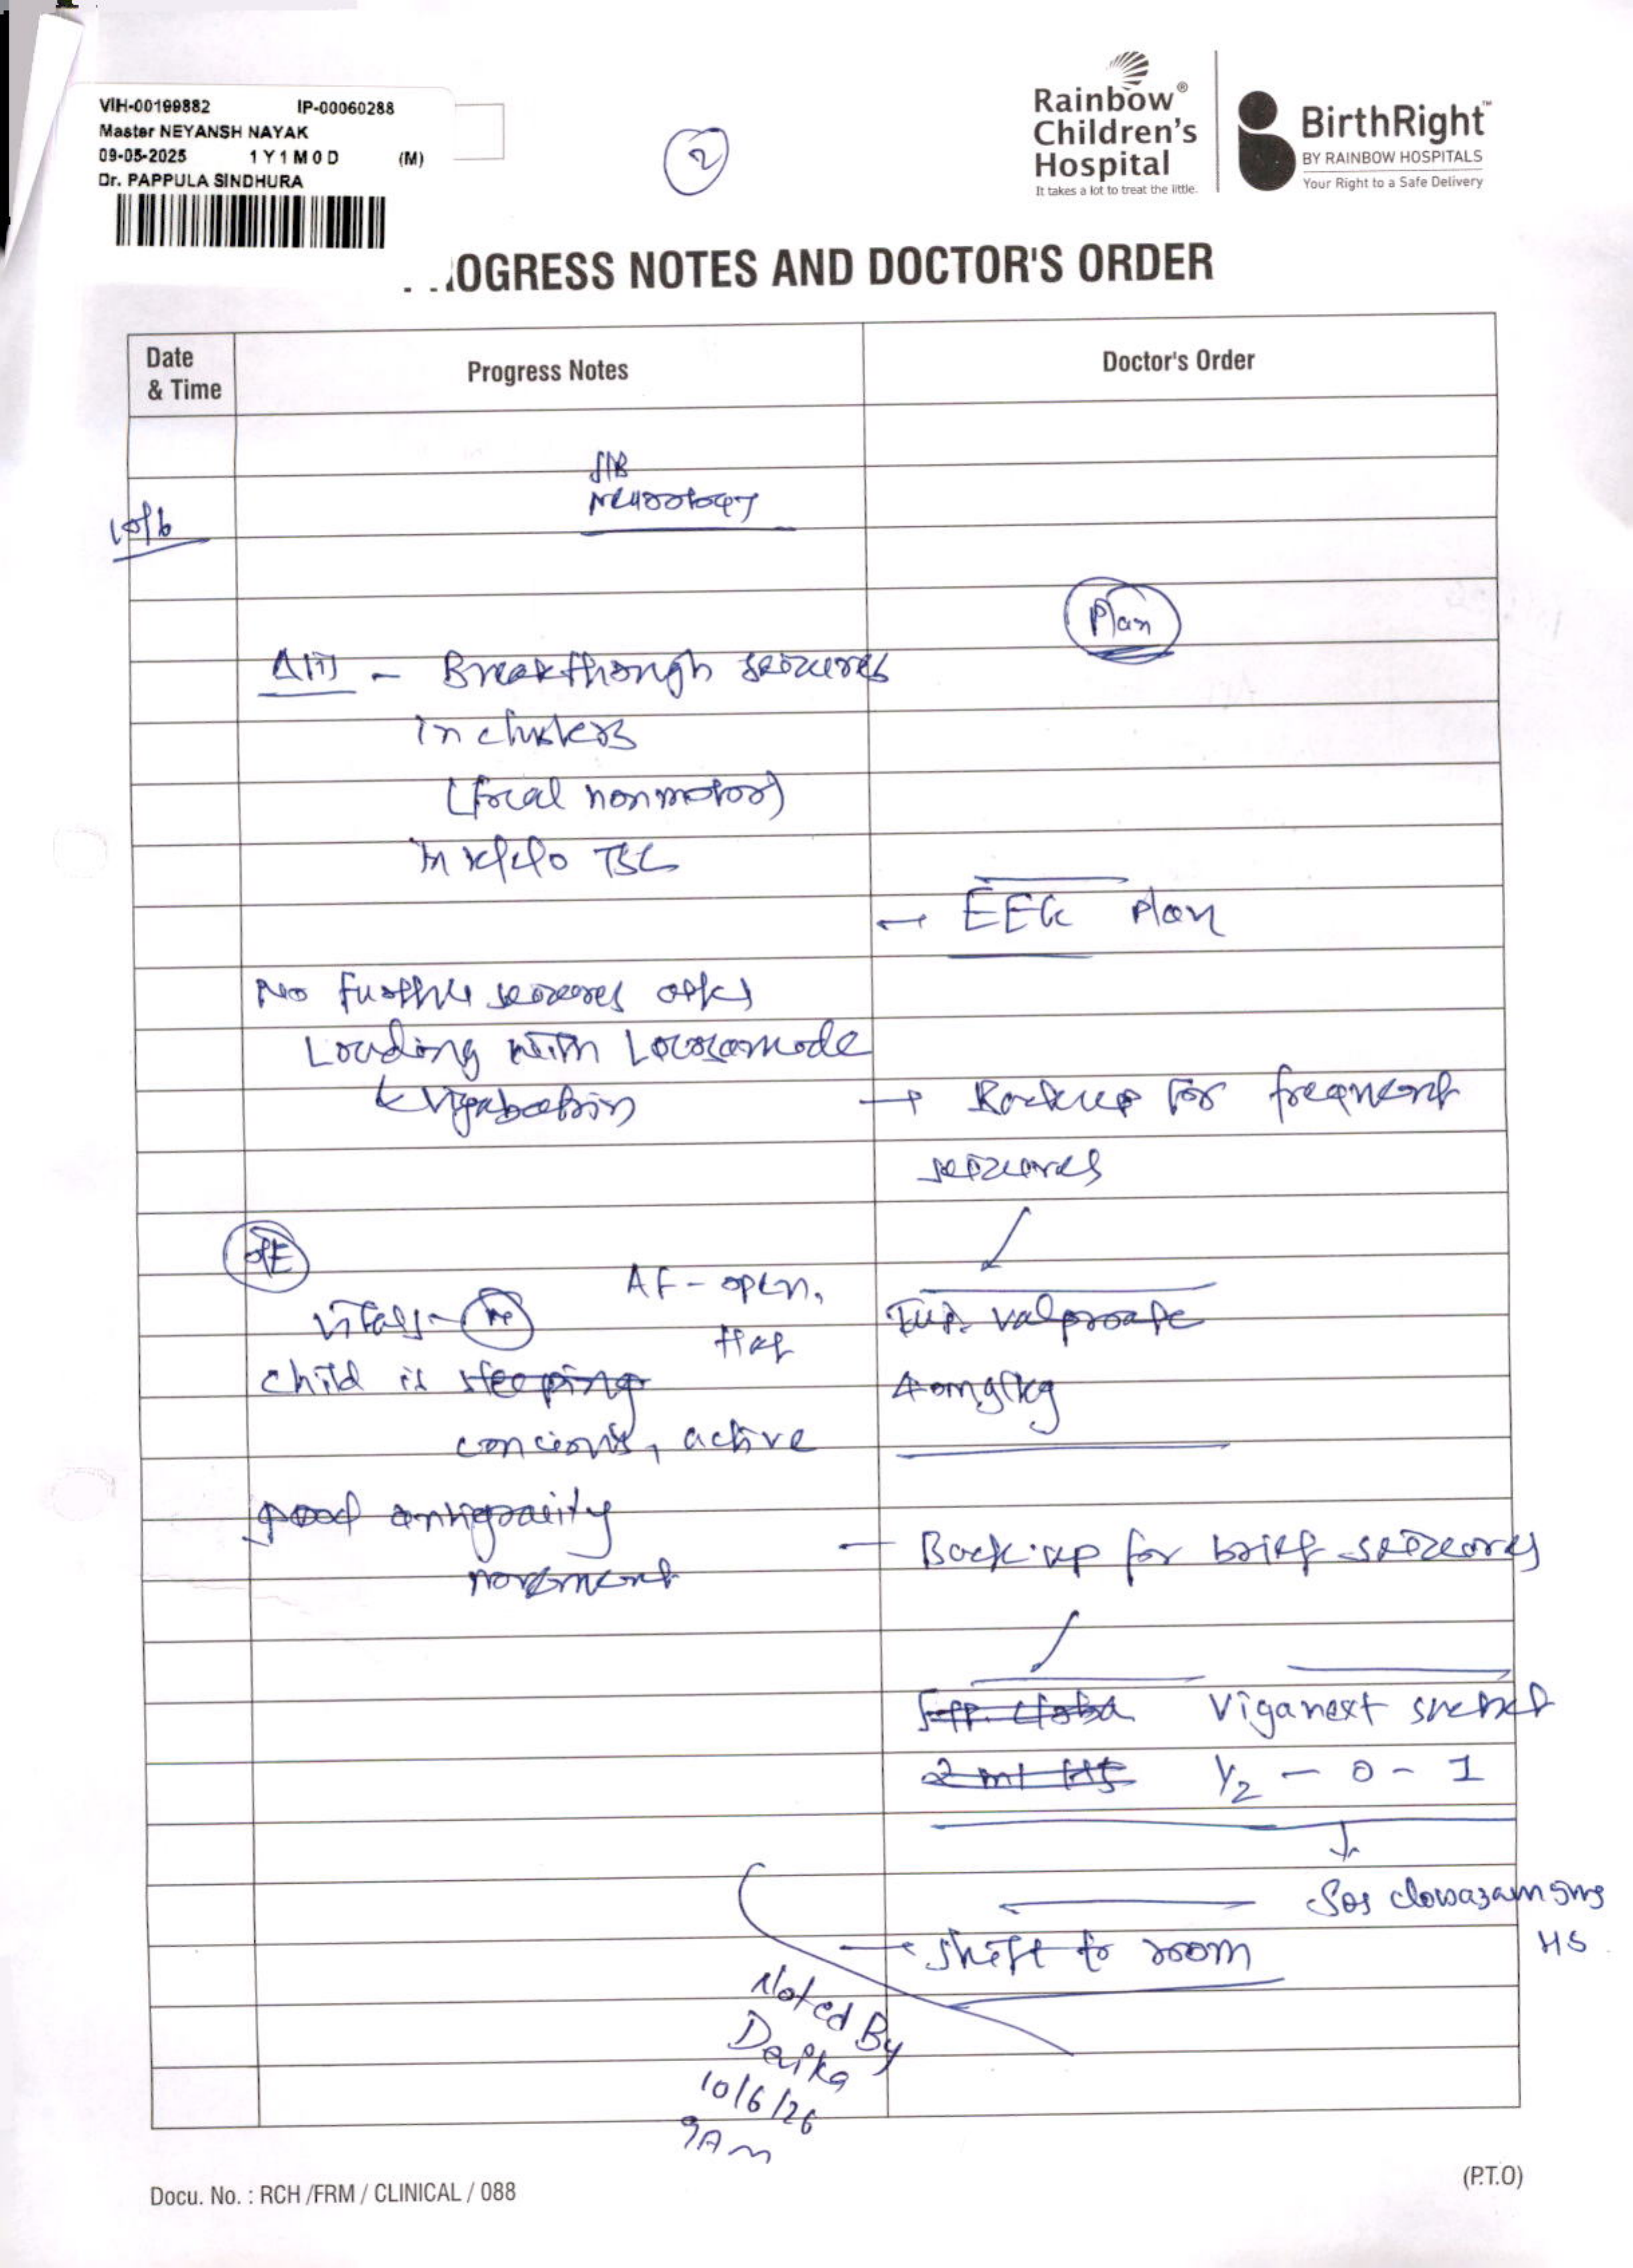 VIH-00199882 IP-00060288
Master NEYANSH NAYAK
09-05-2025 1Y1M0D (M)
Dr. PAPPULA SINDHURA
2
Rainbow®
Children's
Hospital
It takes a lot to treat the little.
BirthRight™
BY RAINBOW HOSPITALS
Your Right to a Safe Delivery
OGRESS NOTES AND DOCTOR'S ORDER
Date
& Time
Progress Notes
Doctor's Order
S/B
Neurology
10/6
Plan
Breakthough seizures
in clusters
(focal nonmotor)
in TSC
→ EEG Plan
No further seizures
Loading with Lacosamide
& Vigabatrin
→ Backup for frequent
seizures
O/E
AF - open,
flat
vitals - N
Inj. valproate
child is sleeping
40mg/kg
concious, active
good antigravity
movement
- Back-up for brief seizures
Syp. Cloba Viganext sachet
2 ml HS 1/2 - 0 - 1
Sos clobazam 5mg
HS
→ shift to room
Noted By
10/6/26
9Am
Docu. No. : RCH /FRM / CLINICAL / 088
(P.T.O)